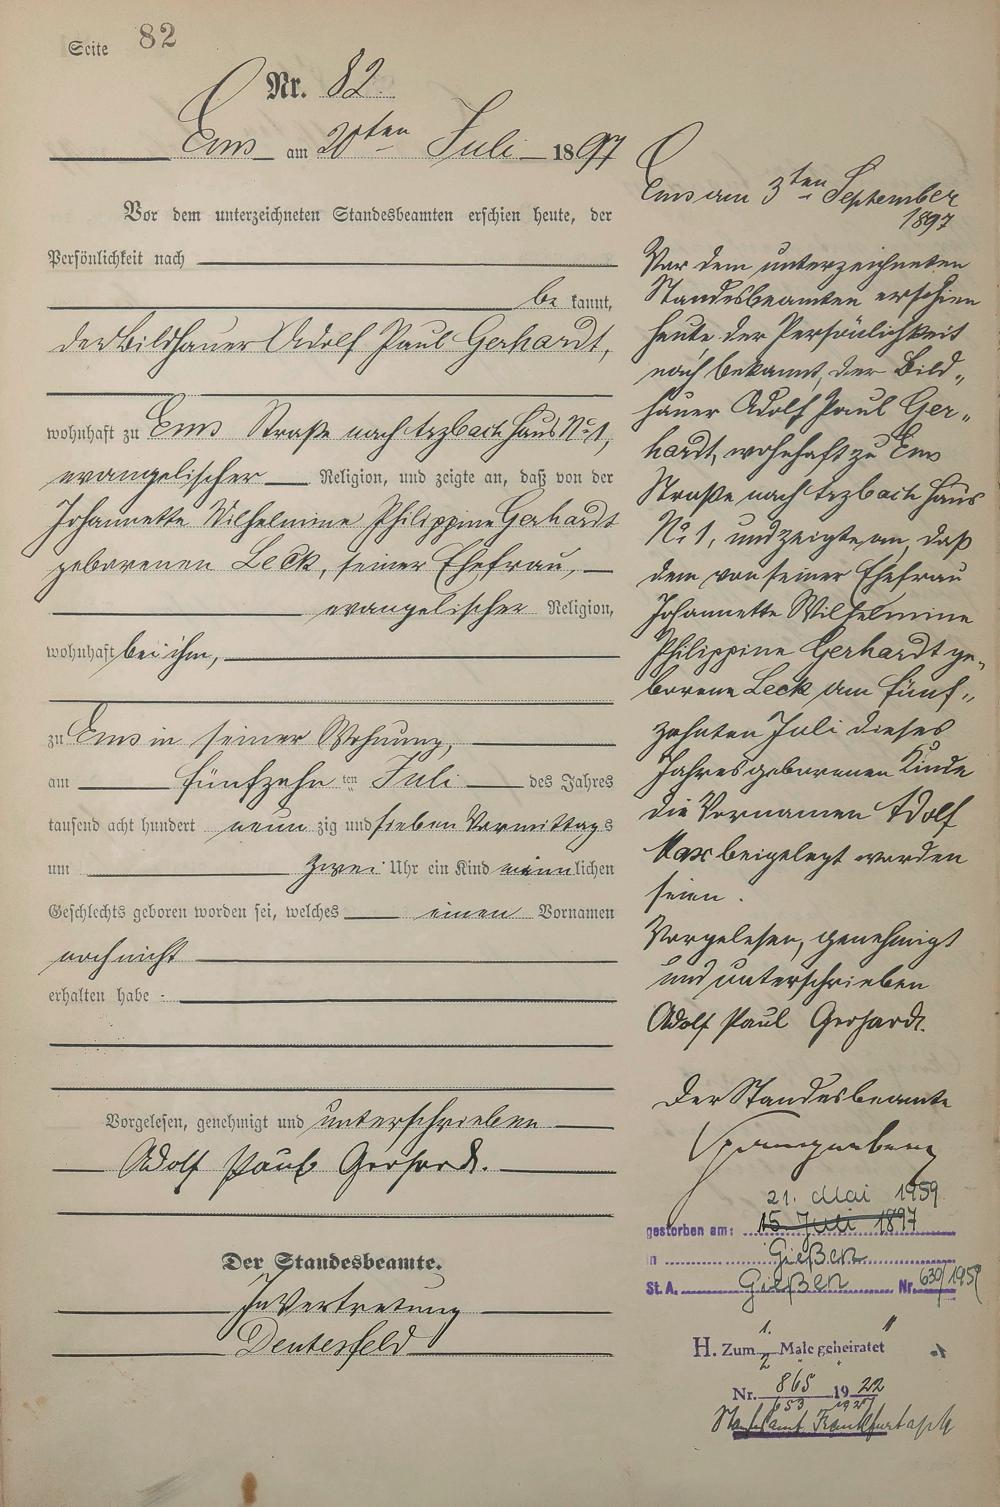 Seite 82
Nr. 82.
Ems am 20ten Juli 1897
Vor dem unterzeichneten Standesbeamten erschien heute, der
Persönlichkeit nach
be kannt,
der Bildhauer Adolf Paul Gerhardt,
wohnhaft zu Ems Straße nach Arzbach Haus No 1,
evangelischer Religion, und zeigte an, daß von der
Johannette Wilhelmine Philippine Gerhardt
geborenen Leck, seiner Ehefrau,
evangelischer Religion,
wohnhaft bei ihm,
zu Ems in seiner Wohnung,
am fünfzehn ten Juli des Jahres
tausend acht hundert neun zig und sieben Vormittags
um zwei Uhr ein Kind männlichen
Geschlechts geboren worden sei, welches einen Vornamen
noch nicht
erhalten habe -
Vorgelesen, genehmigt und unterschrieben
Adolf Paul Gerhardt.
Der Standesbeamte.
In Vertretung
Ems am 3ten September
1897
Vor dem unterzeichneten
Standesbeamten erschien
heute, der Persönlichkeit
nach bekannt, der Bild„
hauer Adolf Paul Ger„
hardt, wohnhaft zu Ems
Straße nach Arzbach Haus
No 1, und zeigte an, daß
dem von seiner Ehefrau
Johannette Wilhelmine
Philippine Gerhardt ge„
borene Leck am fünf„
zehnten Juli dieses
Jahres geborenen Kinde
die Vornamen Adolf
Max beigelegt worden
seien.
Vorgelesen, genehmigt
und unterschrieben
Adolf Paul Gerhardt.
Der Standesbeamte
21. Mai 1959
gestorben am: 15. Juli 1897
in Gießen
St. A. Gießen Nr. 630/1959
1.
H. Zum Male geheiratet
2
Nr. 865 1922
653
Standesamt Frankfurt a/M